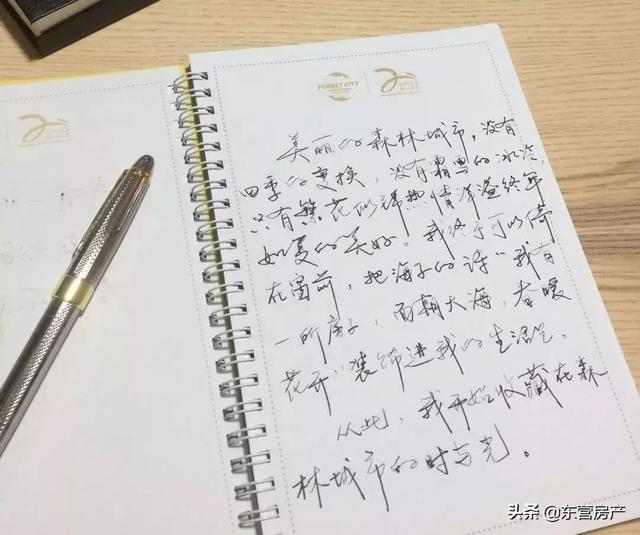 FOREST CITY
美丽的森林城市，没有
四季的变换，没有霜雪的冰冷，
只有繁花似锦热情洋溢终年
如夏的美好。我终于可以倚
在窗前，把海子的诗“我有
一所房子，面朝大海，春暖
花开”装饰进我的生活里。
从此，我开始收藏在森
林城市的时与光。
头条 @东营房产